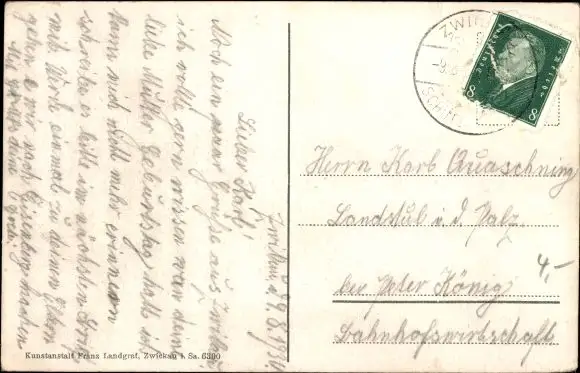 Zwickau d. 9.8.1930.
Lieber Karl!
Noch ein paar Grüße aus Zwickau
ich wollte gern wissen wan deine
liebe Mutter Geburtstag hatt ich
kann mich nicht mehr erinnern
schreibe es bitte im nächsten Brief
mit. Wirst einmal zu deinen Eltern
gehen o. wir nach Eisenberg machen
Es grüßt dich
Kunstanstalt Franz Landgraf, Zwickau i. Sa. 6390
ZWI
Deutsches Reich
8
8
Herrn Karl Quaschning
Landstul i. d. Palz.
bei Peter König
Bahnhofswirtschaft
4,-